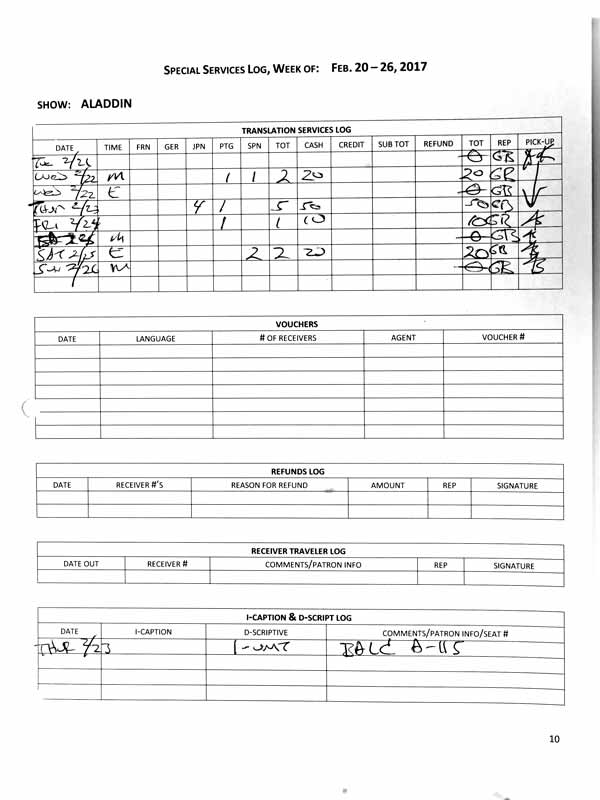 SPECIAL SERVICES LOG, WEEK OF: FEB. 20 – 26, 2017
SHOW: ALADDIN
TRANSLATION SERVICES LOG
DATE TIME FRN GER JPN PTG SPN TOT CASH CREDIT SUB TOT REFUND TOT REP PICK-UP
Tue 2/21 0 GB
WED 2/22 M 1 1 2 20 20 GB
WED 2/22 E 0 GB
THUR 2/23 4 1 5 50 50 GB
FRI 2/24 1 1 10 10 GB
M 0 GB
SAT 2/25 E 2 2 20 20 GB
SUN 2/26 M 0 GB
VOUCHERS
DATE LANGUAGE # OF RECEIVERS AGENT VOUCHER #
REFUNDS LOG
DATE RECEIVER #'S REASON FOR REFUND AMOUNT REP SIGNATURE
RECEIVER TRAVELER LOG
DATE OUT RECEIVER # COMMENTS/PATRON INFO REP SIGNATURE
I-CAPTION & D-SCRIPT LOG
DATE I-CAPTION D-SCRIPTIVE COMMENTS/PATRON INFO/SEAT #
THUR 2/23 1-UNIT BALC A-115
10